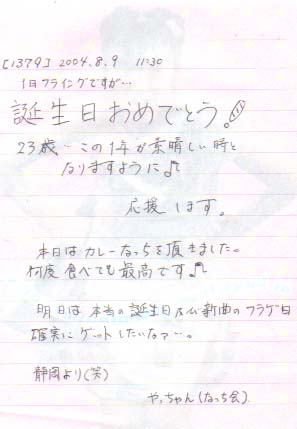 [1379] 2004.8.9 11:30
1日フライングですが…
誕生日おめでとう!
23歳…この1年が素晴しい時と
なりますように♪
応援します。
本日はカレーなっちを頂きました。
何度食べても最高です♪
明日は本当の誕生日及び新曲のフラゲ日
確実にゲットしたいなァ…。
静岡より(笑)
やっちゃん(なっち会)